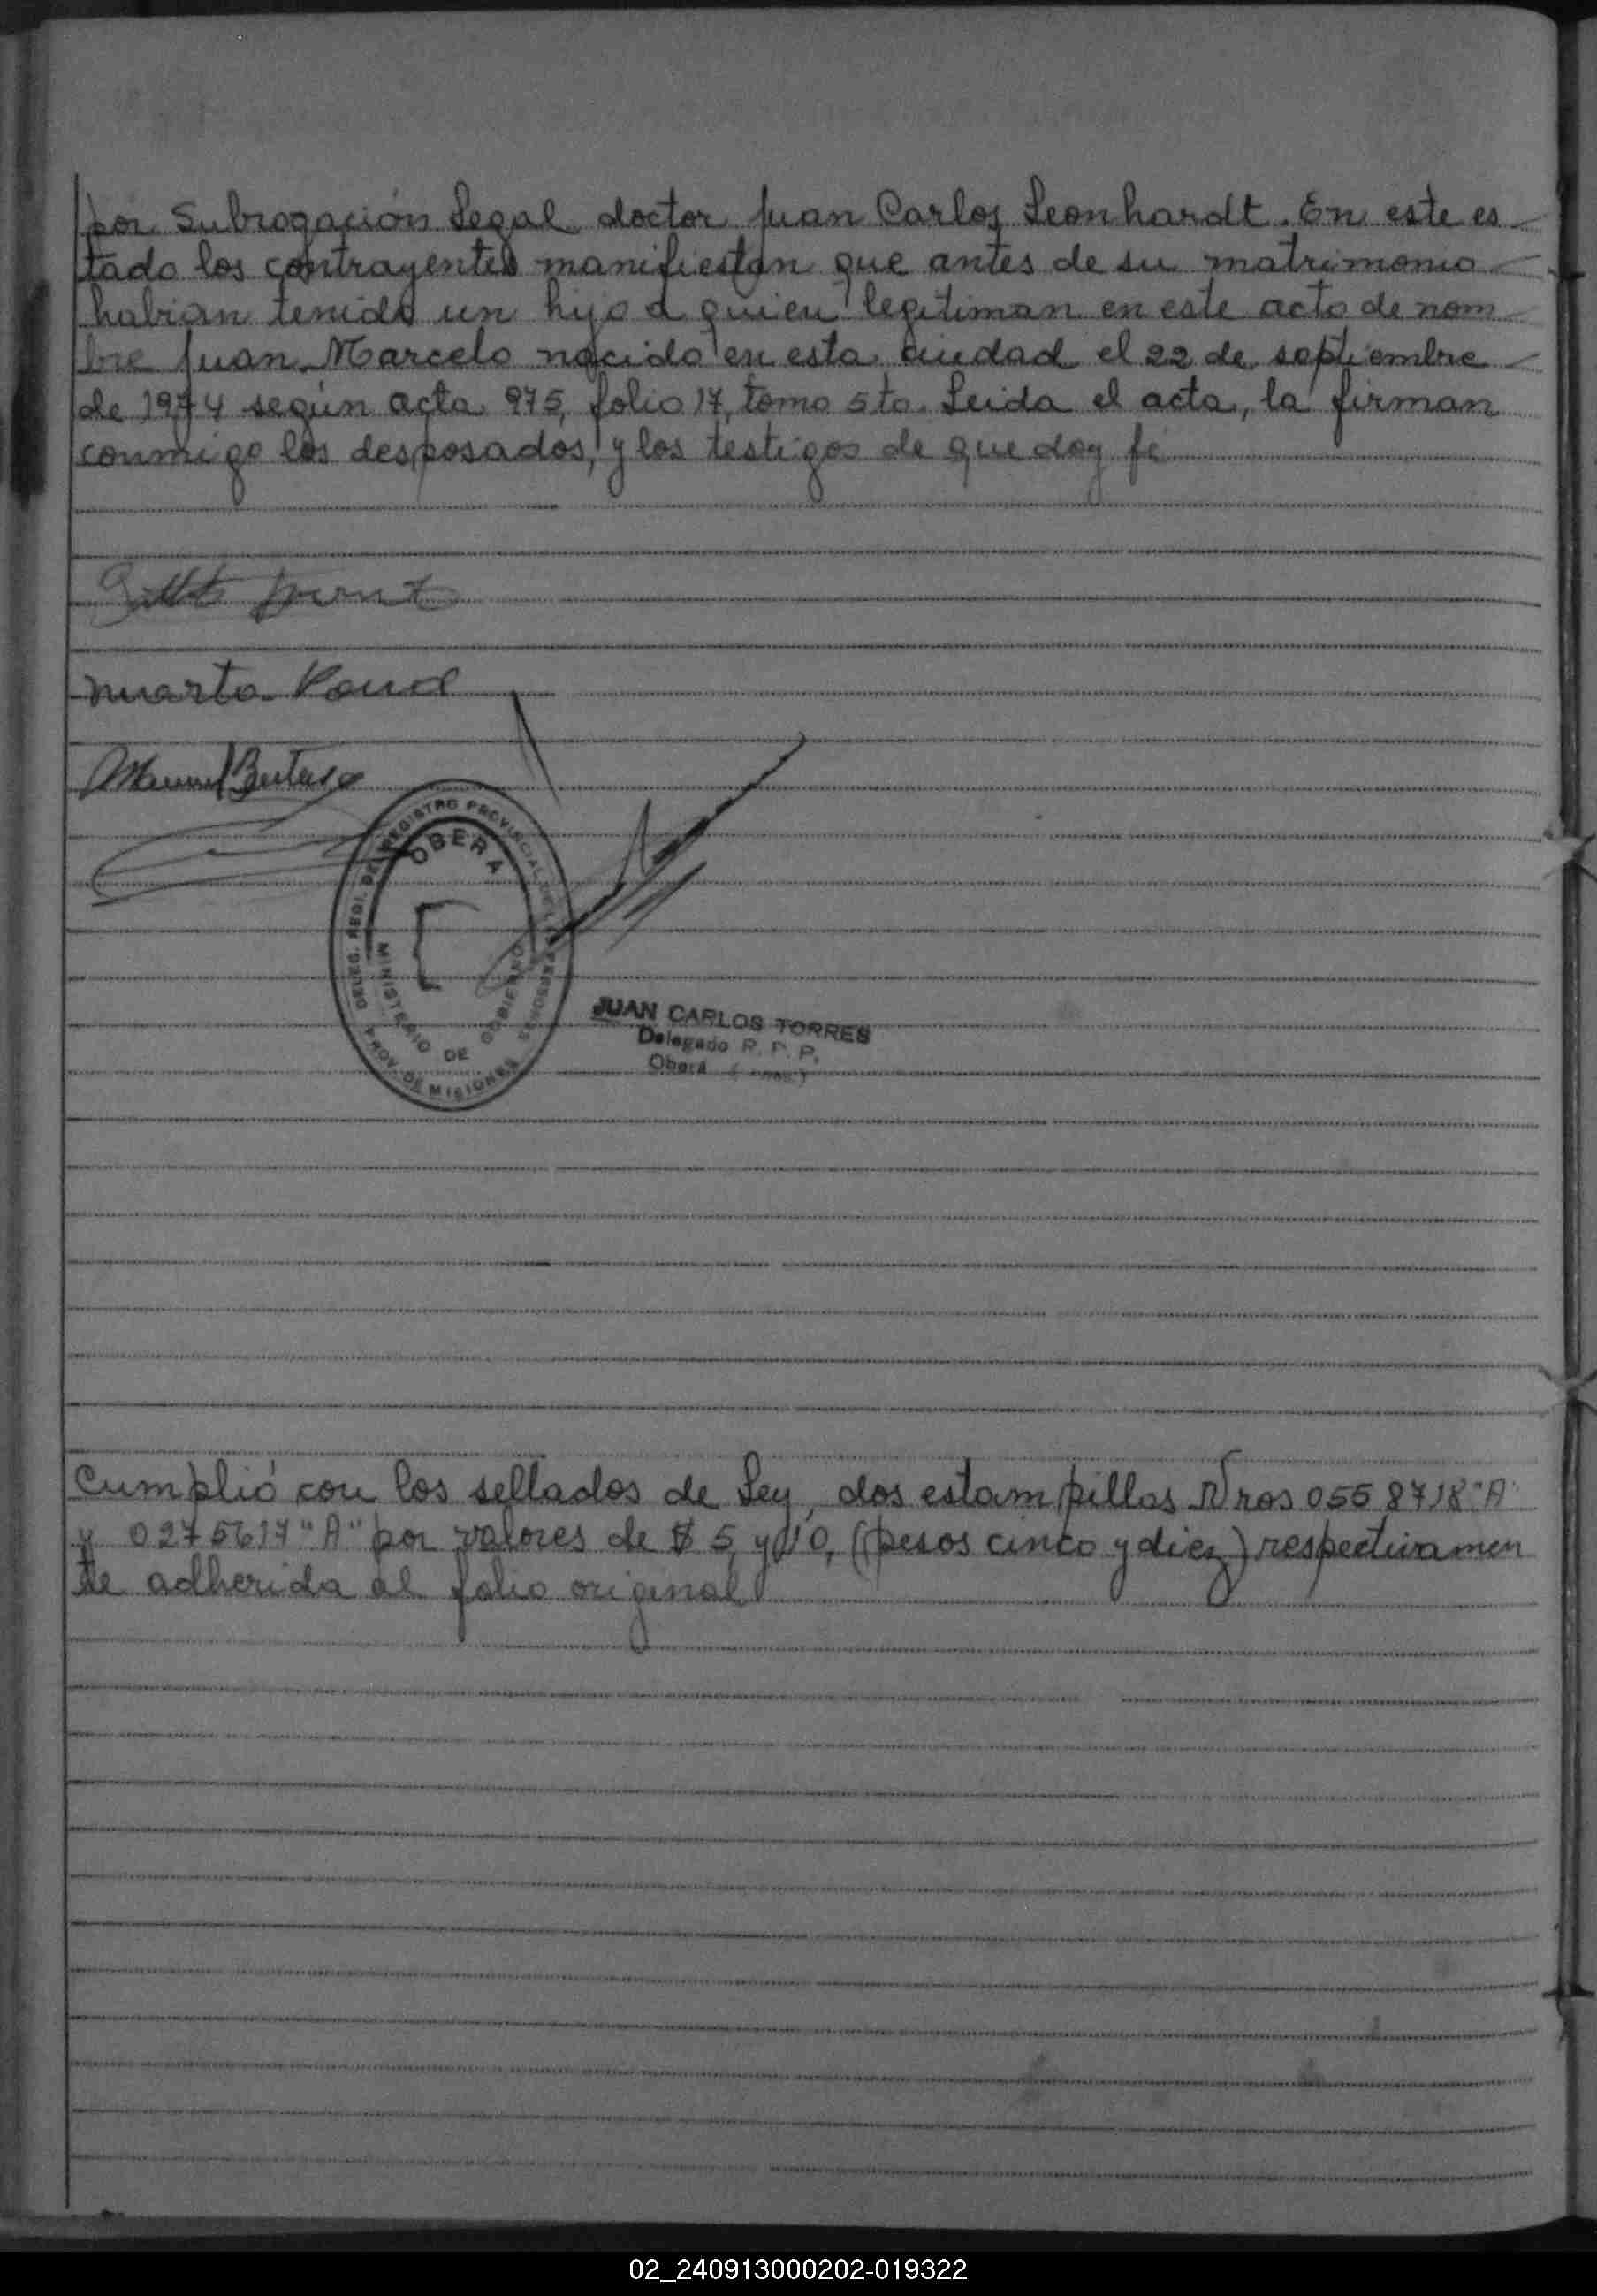 por Subrogación Legal doctor Juan Carlos Leonhardt. En este es
tado los contrayentes manifiestan que antes de su matrimonio
habian tenido un hijo a quien legitiman en este acto de nom
bre Juan Marcelo nacido en esta ciudad el 22 de septiembre
de 1974 según acta 975, folio 17, tomo 5to. Leida el acta, la firman
conmigo los desposados, y los testigos de que doy fé
Marta
Manuel
OBERA
REGISTRO PROVINCIAL DE LAS PERSONAS
MINISTERIO DE GOBIERNO
PROV. DE MISIONES
JUAN CARLOS TORRES
Delegado R. P. P.
Oberá
Cumplió con los sellados de Ley, dos estampillas Nros 0558718 "A"
y 0275617 "A" por valores de $ 5, y 10, (pesos cinco y diez) respectivamen
te adherida al folio original
02_240913000202-019322